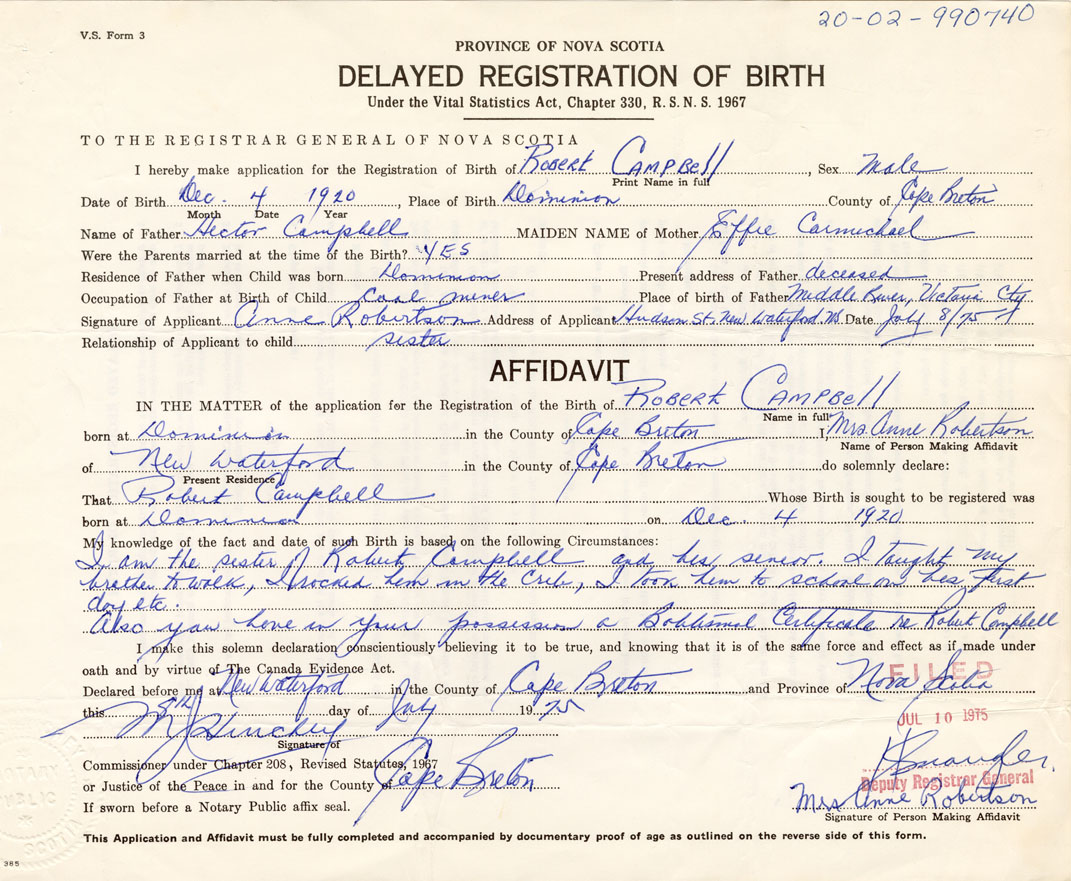 20-02-990740
V.S. Form 3
PROVINCE OF NOVA SCOTIA
DELAYED REGISTRATION OF BIRTH
Under the Vital Statistics Act, Chapter 330, R.S.N.S. 1967
TO THE REGISTRAR GENERAL OF NOVA SCOTIA
I hereby make application for the Registration of Birth of ROBERT CAMPBELL, Sex Male
Print Name in full
Date of Birth Dec. 4 1920, Place of Birth Dominion County of Cape Breton
Month Date Year
Name of Father Hector Campbell MAIDEN NAME of Mother Effie Carmichael
Were the Parents married at the time of the Birth? YES
Residence of Father when Child was born Dominion Present address of Father deceased
Occupation of Father at Birth of Child Coal miner Place of birth of Father Middle River, Victoria Cty
Signature of Applicant Anne Robertson Address of Applicant Hudson St. New Waterford. NS Date July 8/75
Relationship of Applicant to child sister
AFFIDAVIT
IN THE MATTER of the application for the Registration of the Birth of ROBERT CAMPBELL
Name in full
born at Dominion in the County of Cape Breton I, Mrs. Anne Robertson
Name of Person Making Affidavit
of New Waterford in the County of Cape Breton do solemnly declare:
Present Residence
That Robert Campbell Whose Birth is sought to be registered was
born at Dominion on Dec. 4 1920
My knowledge of the fact and date of such Birth is based on the following Circumstances:
I am the sister of Robert Campbell and his senior. I taught my
brother to walk, I rocked him in the Crib, I took him to school on his first
day etc.
Also you have in your possession a Babtismal Certificate re Robert Campbell
I make this solemn declaration conscientiously believing it to be true, and knowing that it is of the same force and effect as if made under
oath and by virtue of The Canada Evidence Act.
FILED
Declared before me at New Waterford in the County of Cape Breton and Province of Nova Scotia
this 8th day of July 1975
JUL 10 1975
Signature of
Commissioner under Chapter 208, Revised Statutes, 1967
or Justice of the Peace in and for the County of Cape Breton
Deputy Registrar General
If sworn before a Notary Public affix seal.
Mrs Anne Robertson
Signature of Person Making Affidavit
This Application and Affidavit must be fully completed and accompanied by documentary proof of age as outlined on the reverse side of this form.
385